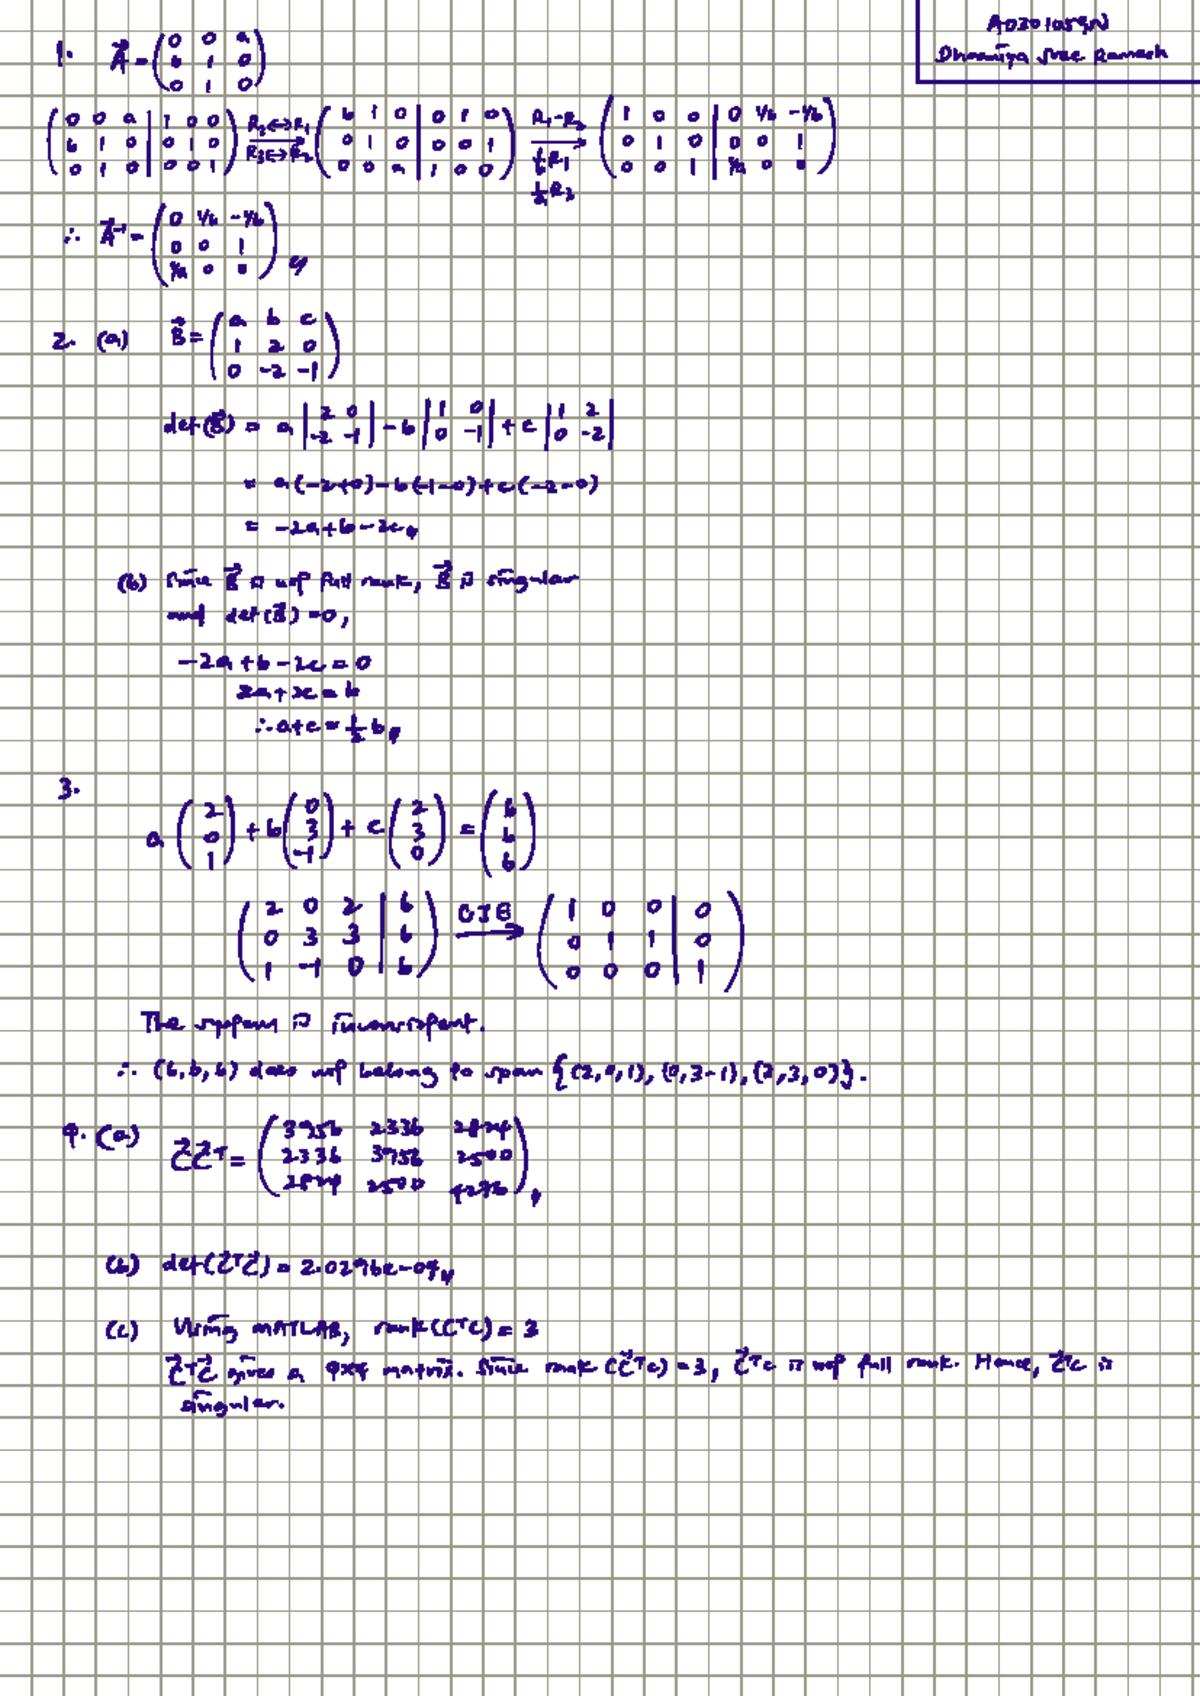 Dhaaniya Sree Ramesh
1. A = (0 0 a; b 1 0; 0 1 0)
(0 0 a | 1 0 0; b 1 0 | 0 1 0; 0 1 0 | 0 0 1) R₂↔R₁ R₃↔R₂ → (b 1 0 | 0 1 0; 0 1 0 | 0 0 1; 0 0 a | 1 0 0) R₁-R₂ 1/b R₁ 1/a R₃ → (1 0 0 | 0 1/b -1/b; 0 1 0 | 0 0 1; 0 0 1 | 1/a 0 0)
∴ A⁻¹ = (0 1/b -1/b; 0 0 1; 1/a 0 0)
2. (a) B = (a b c; 1 2 0; 0 -2 -1)
det(B) = a |2 0; -2 -1| - b |1 0; 0 -1| + c |1 2; 0 -2|
= a(-2+0)-b(-1-0)+c(-2-0)
= -2a+b-2c
(b) Since B is not full rank, B is singular
and det(B)=0,
-2a+b-2c=0
2a+2c=b
∴ a+c=1/2 b
3.
a (2; 0; 1) + b (0; 3; -1) + c (2; 3; 0) = (6; 6; 6)
(2 0 2 | 6; 0 3 3 | 6; 1 -1 0 | 6) GJE → (1 0 0 | 0; 0 1 1 | 0; 0 0 0 | 1)
The system is inconsistent.
∴ (6,6,6) does not belong to span {(2,0,1), (0,3-1), (2,3,0)}.
4. (a) CCᵀ = (3956 2336 2824; 2336 3956 2500; 2824 2500 4276)
(b) det(CᵀC) = 2.0296e-04
(c) Using MATLAB, rank(CᵀC) = 3
CᵀC gives a 4x4 matrix. Since rank (CᵀC) = 3, CᵀC is not full rank. Hence, CᵀC is
singular.